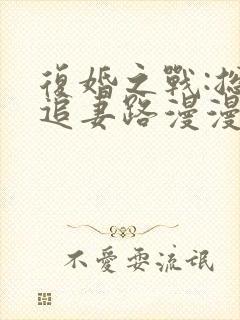 復婚之戰:總
追妻路漫漫
不愛耍流氓